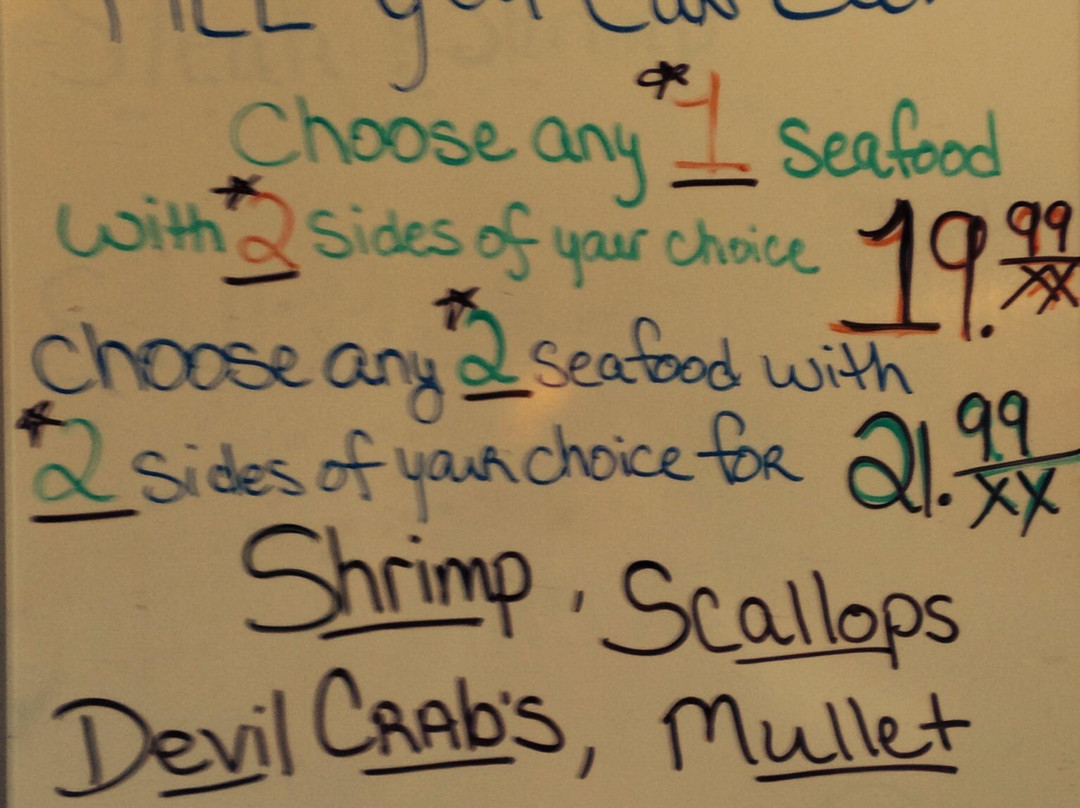 ALL you can eat
Choose any *1 seafood
with *2 sides of your choice 19.99/xx
choose any *2 seafood with
*2 sides of your choice for 21.99/xx
Shrimp, Scallops
Devil CRAb's, Mullet